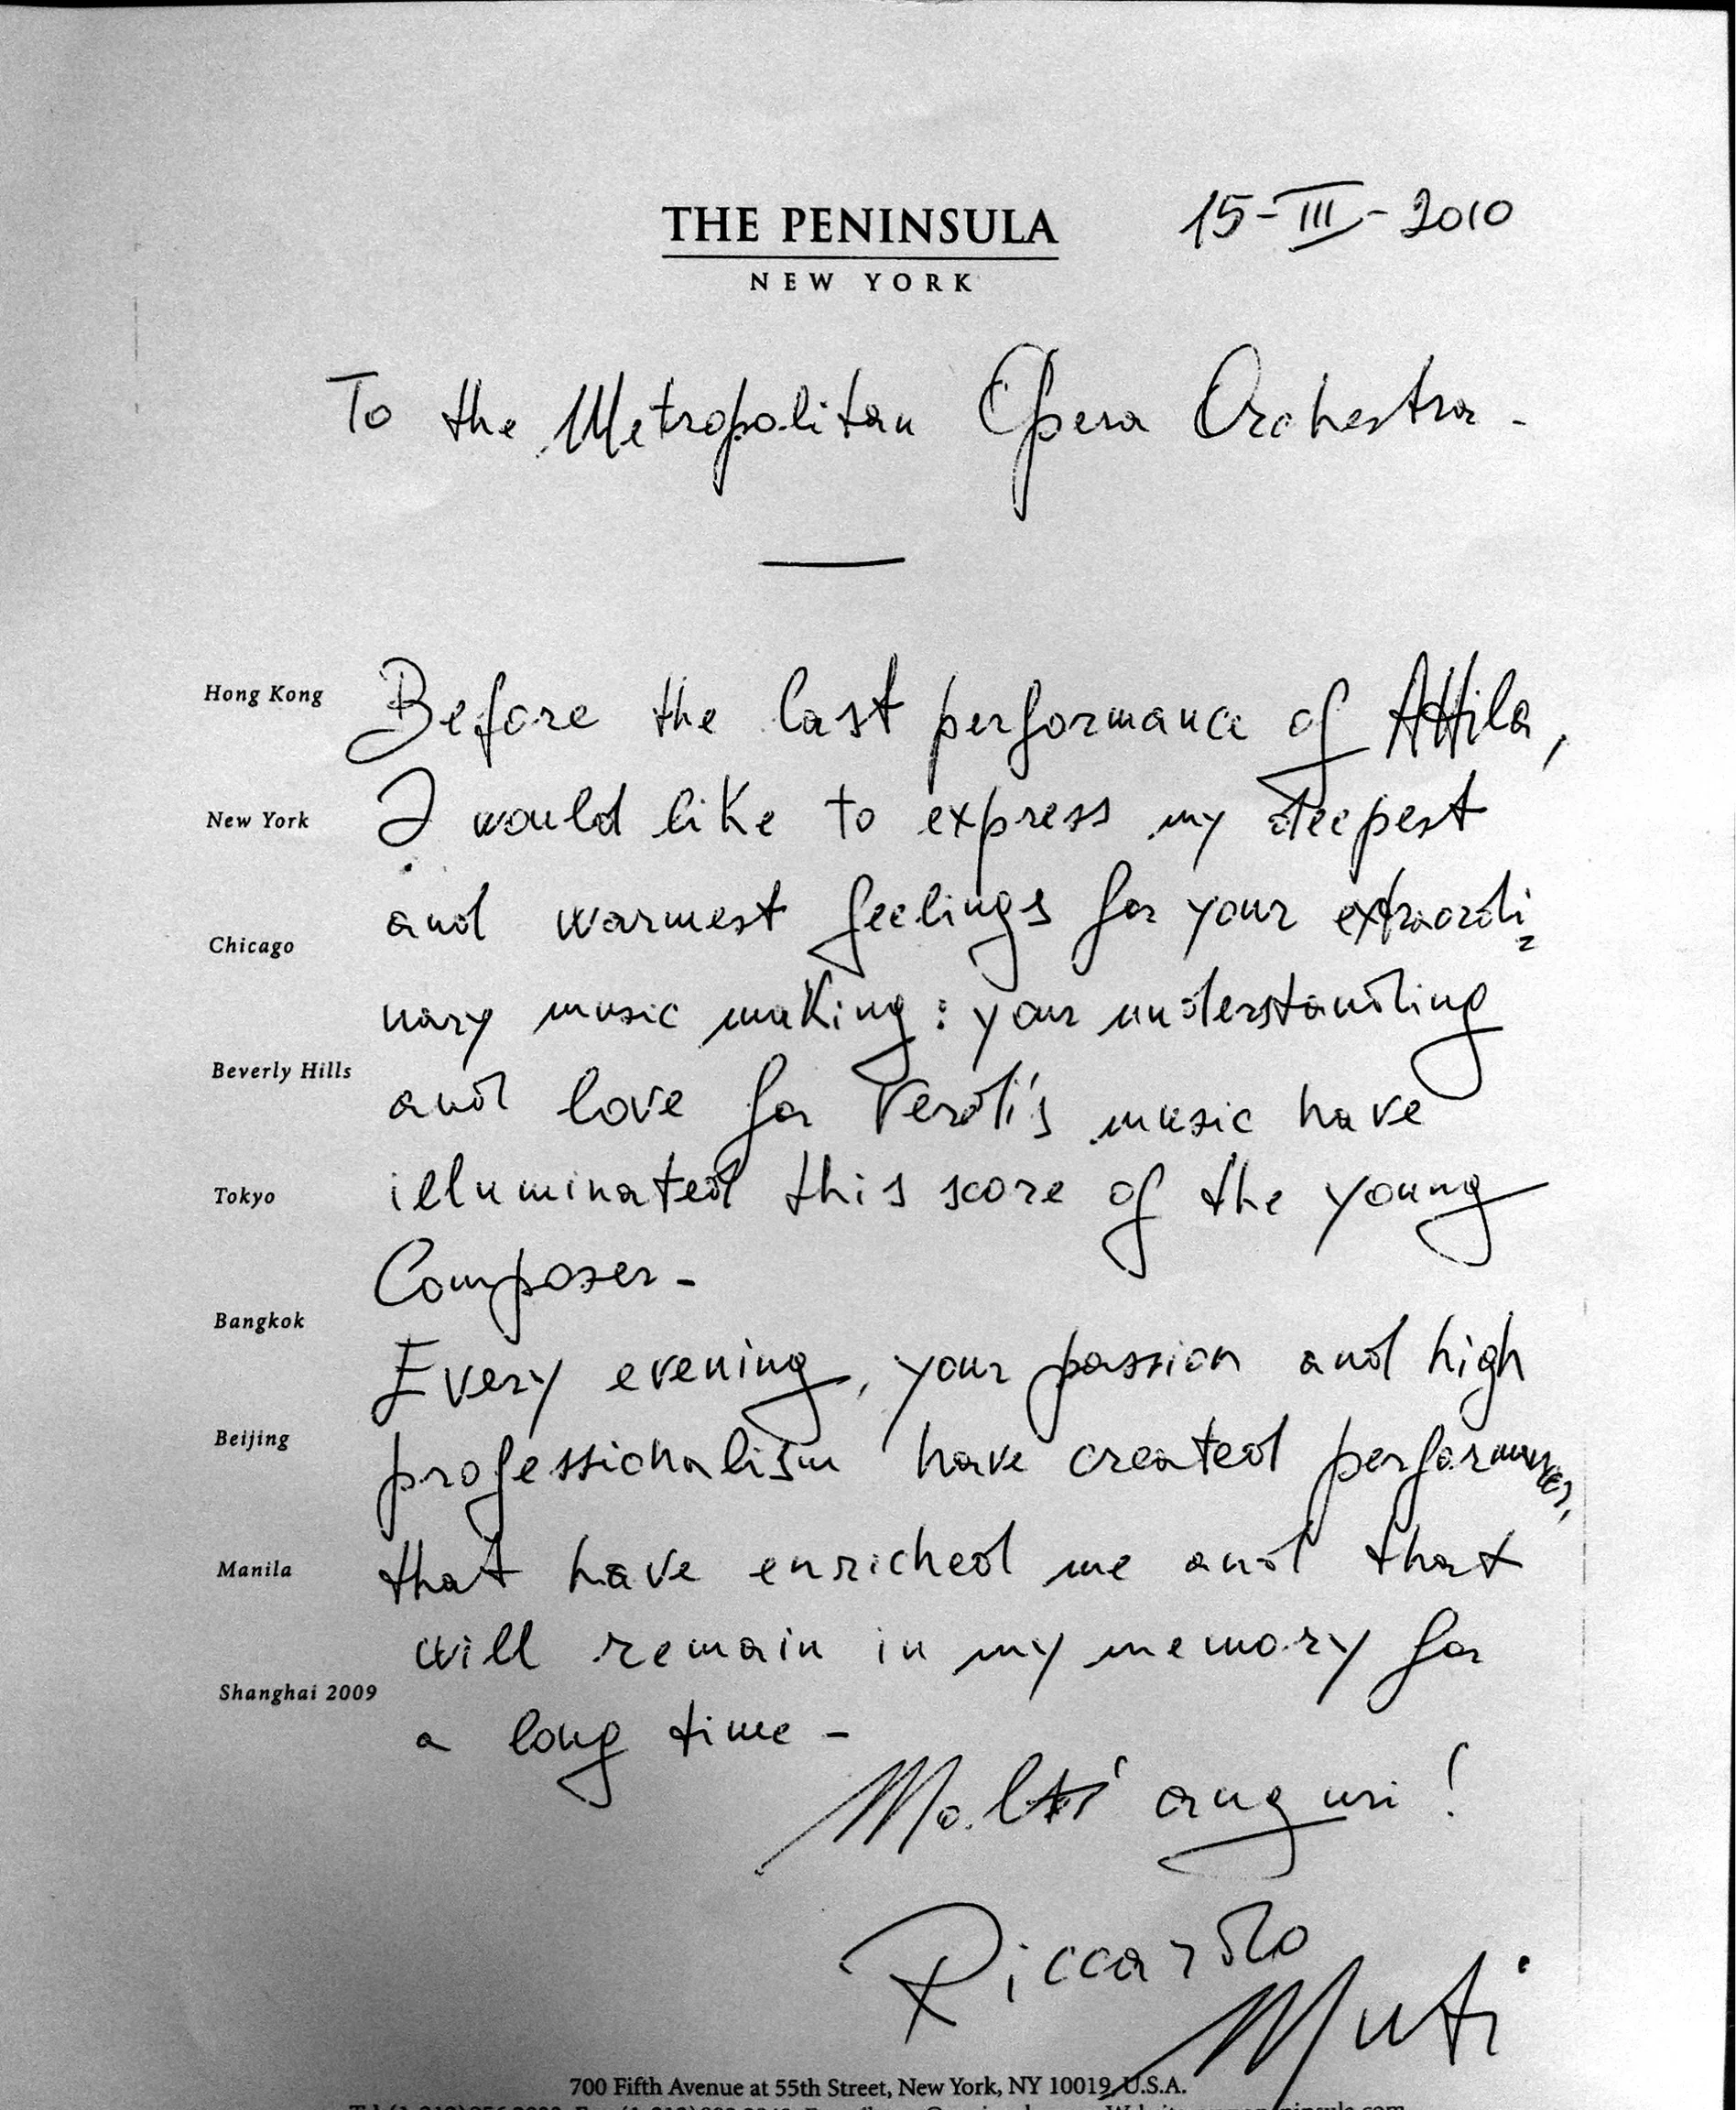 THE PENINSULA
NEW YORK
15-III-2010
To the Metropolitan Opera Orchestra.
Hong Kong
New York
Chicago
Beverly Hills
Tokyo
Bangkok
Beijing
Manila
Shanghai 2009
Before the last performance of Attila,
I would like to express my deepest
and warmest feelings for your extraordi=
nary music making: your understanding
and love for Verdi's music have
illuminated this score of the young
Composer-
Every evening, your passion and high
professionalism have created performances,
that have enriched me and that
will remain in my memory for
a long time -
Molti auguri!
Riccardo
Muti
700 Fifth Avenue at 55th Street, New York, NY 10019, U.S.A.